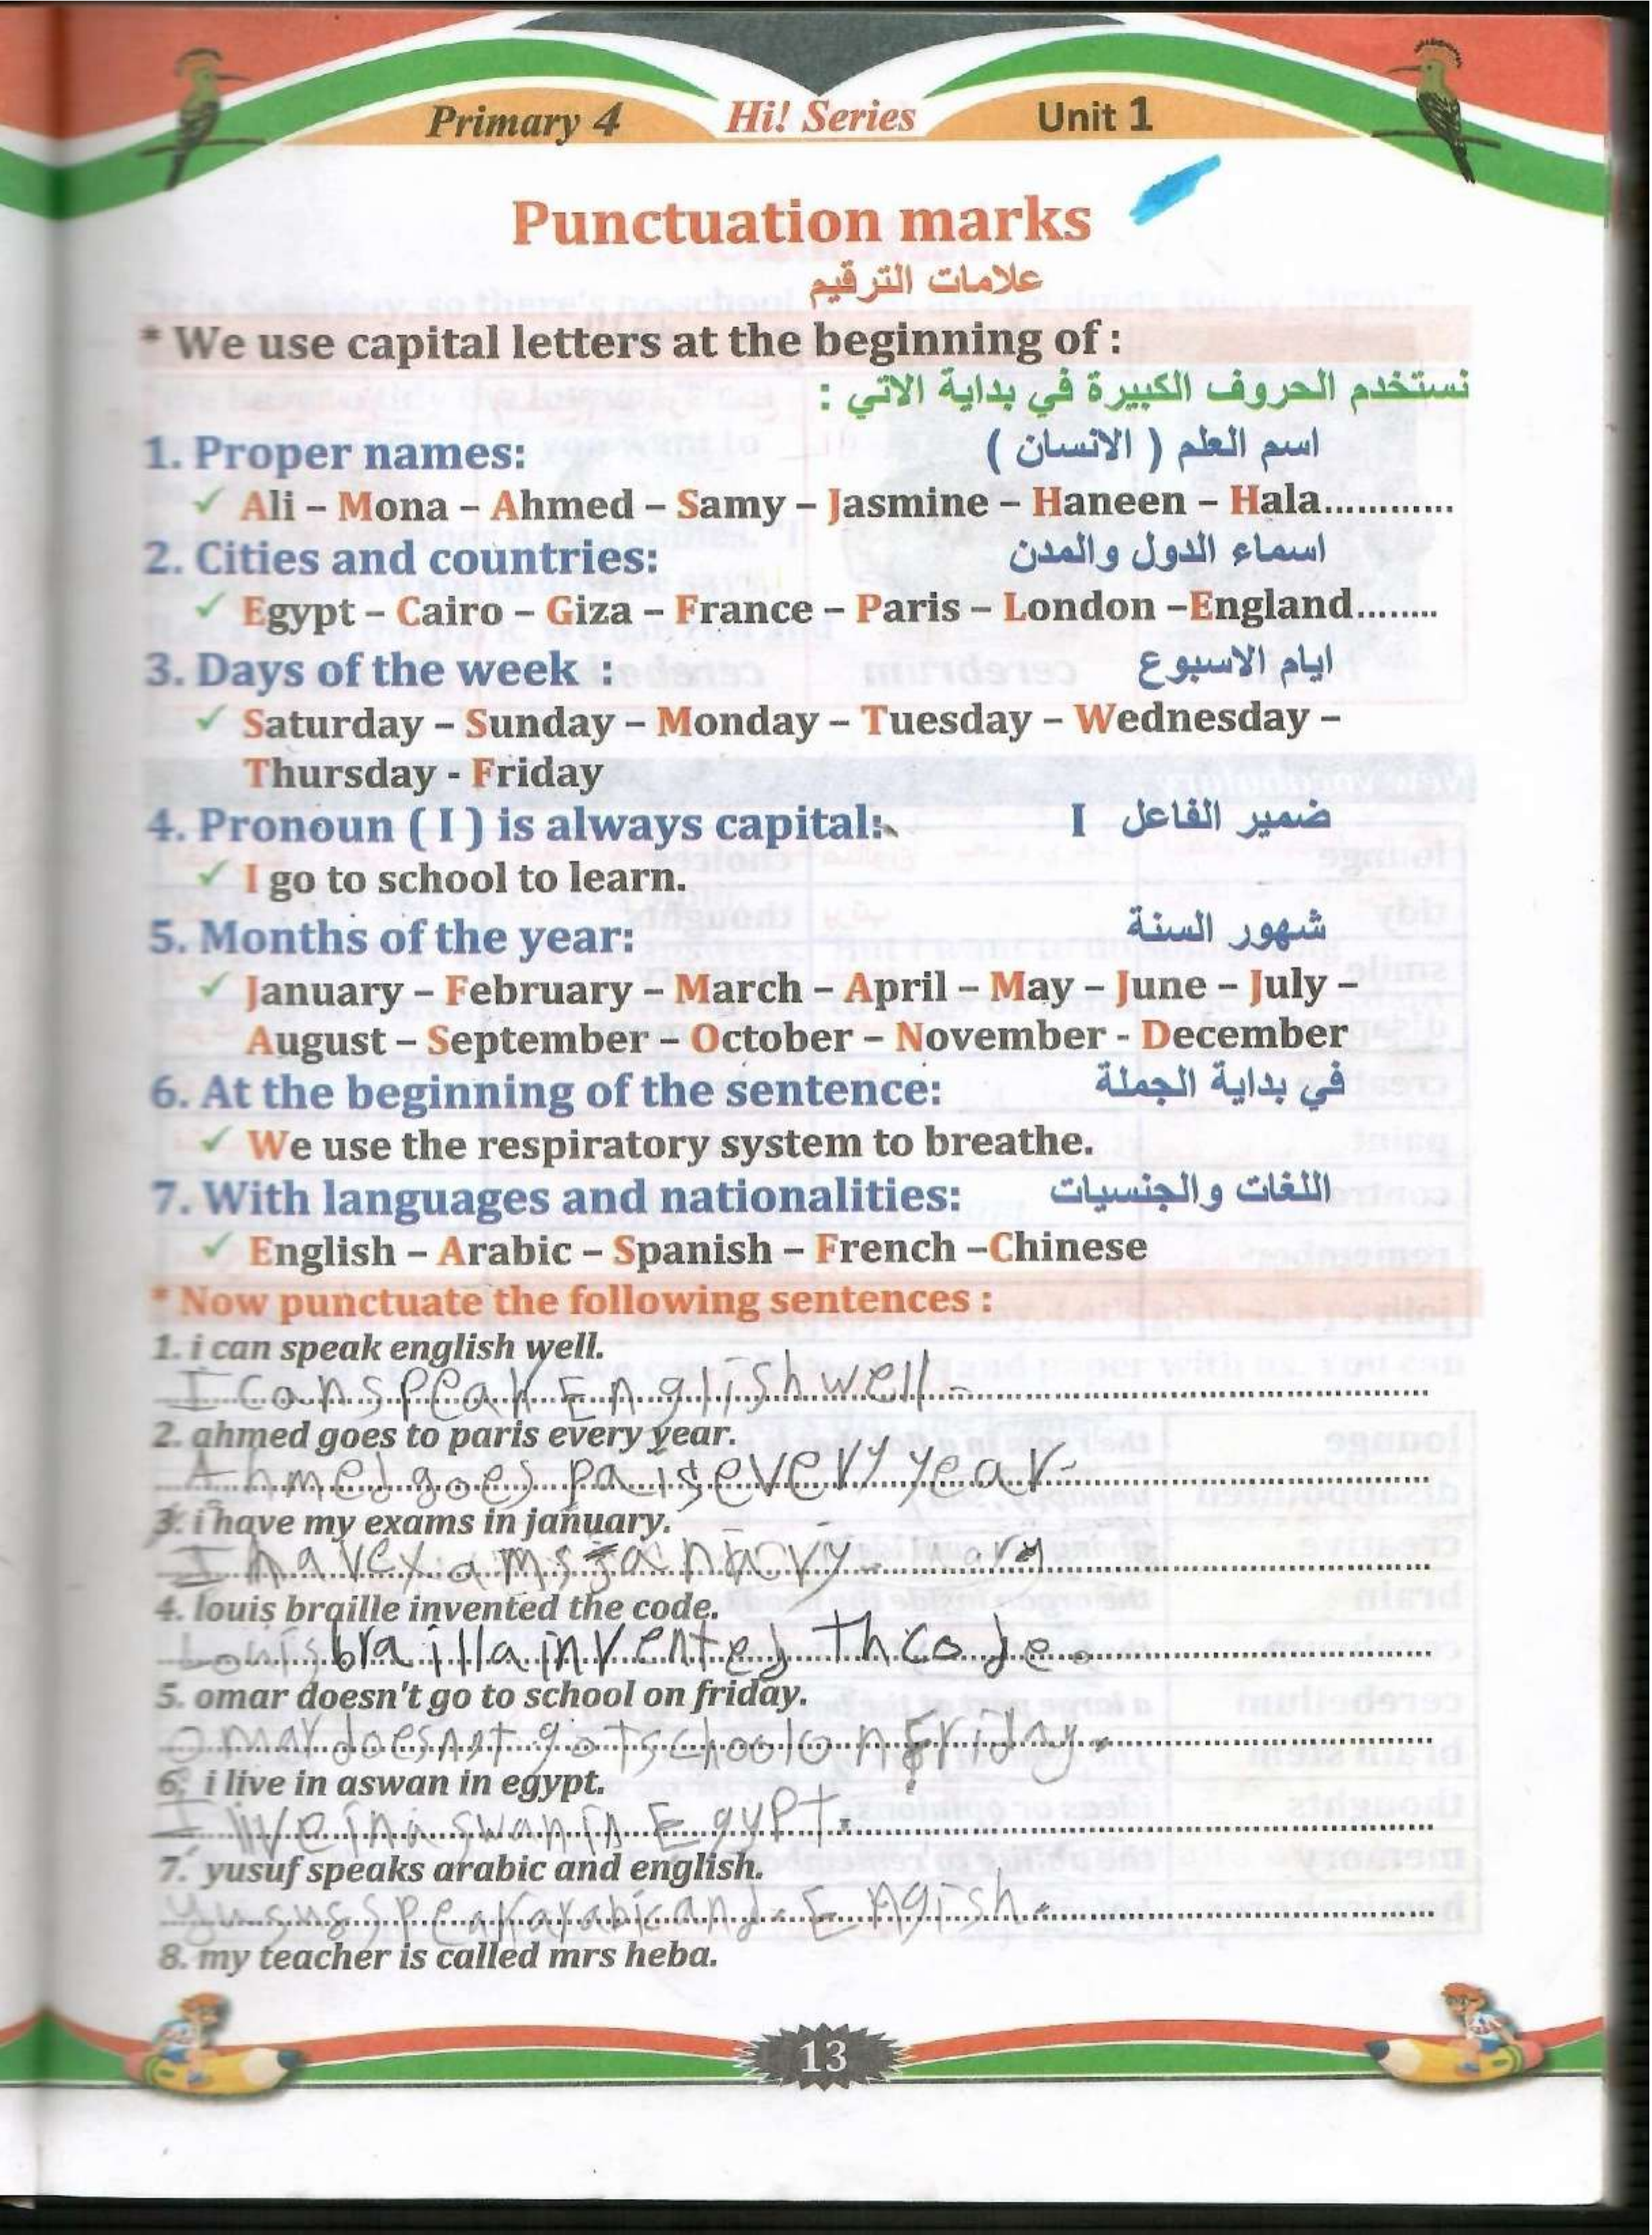 Primary 4 Hi! Series Unit 1
Punctuation marks
علامات الترقيم
* We use capital letters at the beginning of :
نستخدم الحروف الكبيرة في بداية الاتي :
1. Proper names: اسم العلم ( الانسان )
✓ Ali – Mona – Ahmed – Samy – Jasmine – Haneen – Hala............
2. Cities and countries: اسماء الدول والمدن
✓ Egypt – Cairo – Giza – France – Paris – London –England........
3. Days of the week : ايام الاسبوع
✓ Saturday – Sunday – Monday – Tuesday – Wednesday –
Thursday - Friday
4. Pronoun ( I ) is always capital: ضمير الفاعل I
✓ I go to school to learn.
5. Months of the year: شهور السنة
✓ January – February – March – April – May – June – July –
August – September – October – November - December
6. At the beginning of the sentence: في بداية الجملة
✓ We use the respiratory system to breathe.
7. With languages and nationalities: اللغات والجنسيات
✓ English – Arabic – Spanish – French –Chinese
* Now punctuate the following sentences :
1. i can speak english well.
I can speak English well.
2. ahmed goes to paris every year.
Ahmed goes pa is every year.
3. i have my exams in january.
I hav exams
4. louis braille invented the code.
Louis brailla invented th code.
5. omar doesn't go to school on friday.
Omar doesnot go t school on Friday.
6. i live in aswan in egypt.
I live in aswan in Egypt.
7. yusuf speaks arabic and english.
yusus speak arabic and Engish.
8. my teacher is called mrs heba.
13